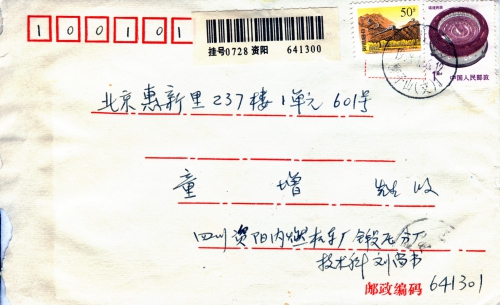 100101
挂号0728 资阳 641300
50分
中国人民邮政
北京惠新里237楼1单元601号
童增 先生 收
四川资阳内燃机车厂锻压分厂
技术科 刘尚书
邮政编码 641301